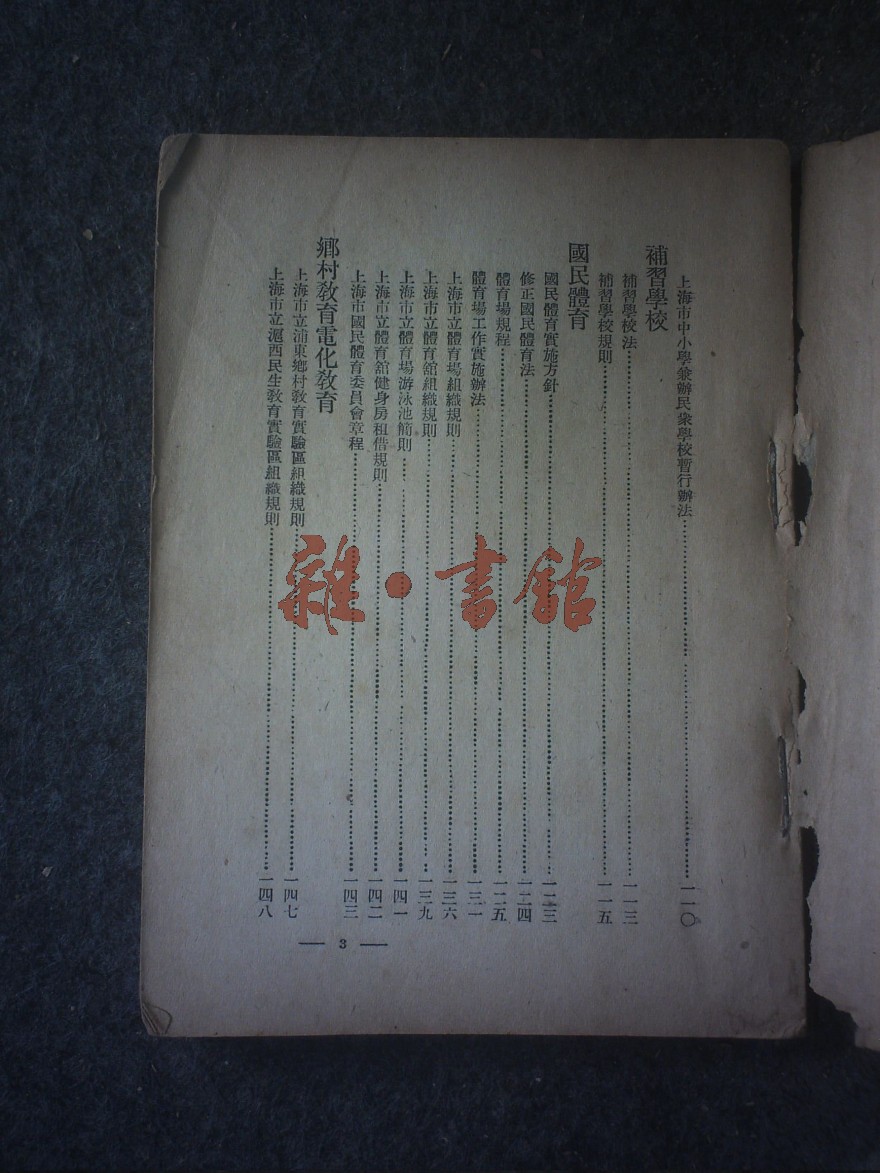 上海市中小學兼辦民衆學校暫行辦法……一一〇
補習學校
補習學校法……一一三
補習學校規則……一一五
國民體育
國民體育實施方針……一二三
修正國民體育法……一二四
體育場規程……一二五
體育場工作實施辦法……一三一
上海市立體育場組織規則……一三六
上海市立體育館組織規則……一三九
上海市立體育場游泳池簡則……一四一
上海市立體育館健身房租借規則……一四二
上海市國民體育委員會章程……一四三
鄉村教育電化教育
上海市立浦東鄉村教育實驗區組織規則……一四七
上海市立滬西民生教育實驗區組織規則……一四八
— 3 —
雜·書館